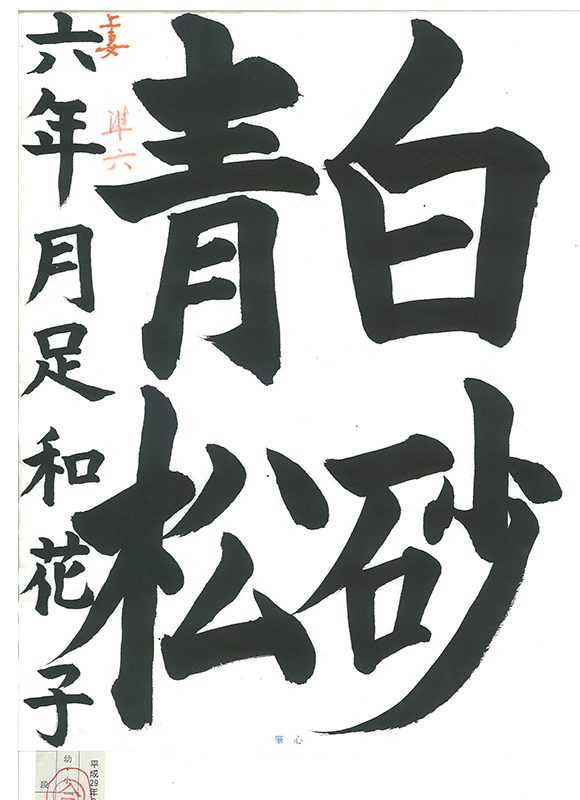 白砂
青松
六年 月足和花子
準六
筆心
平成29年
幼
小
段